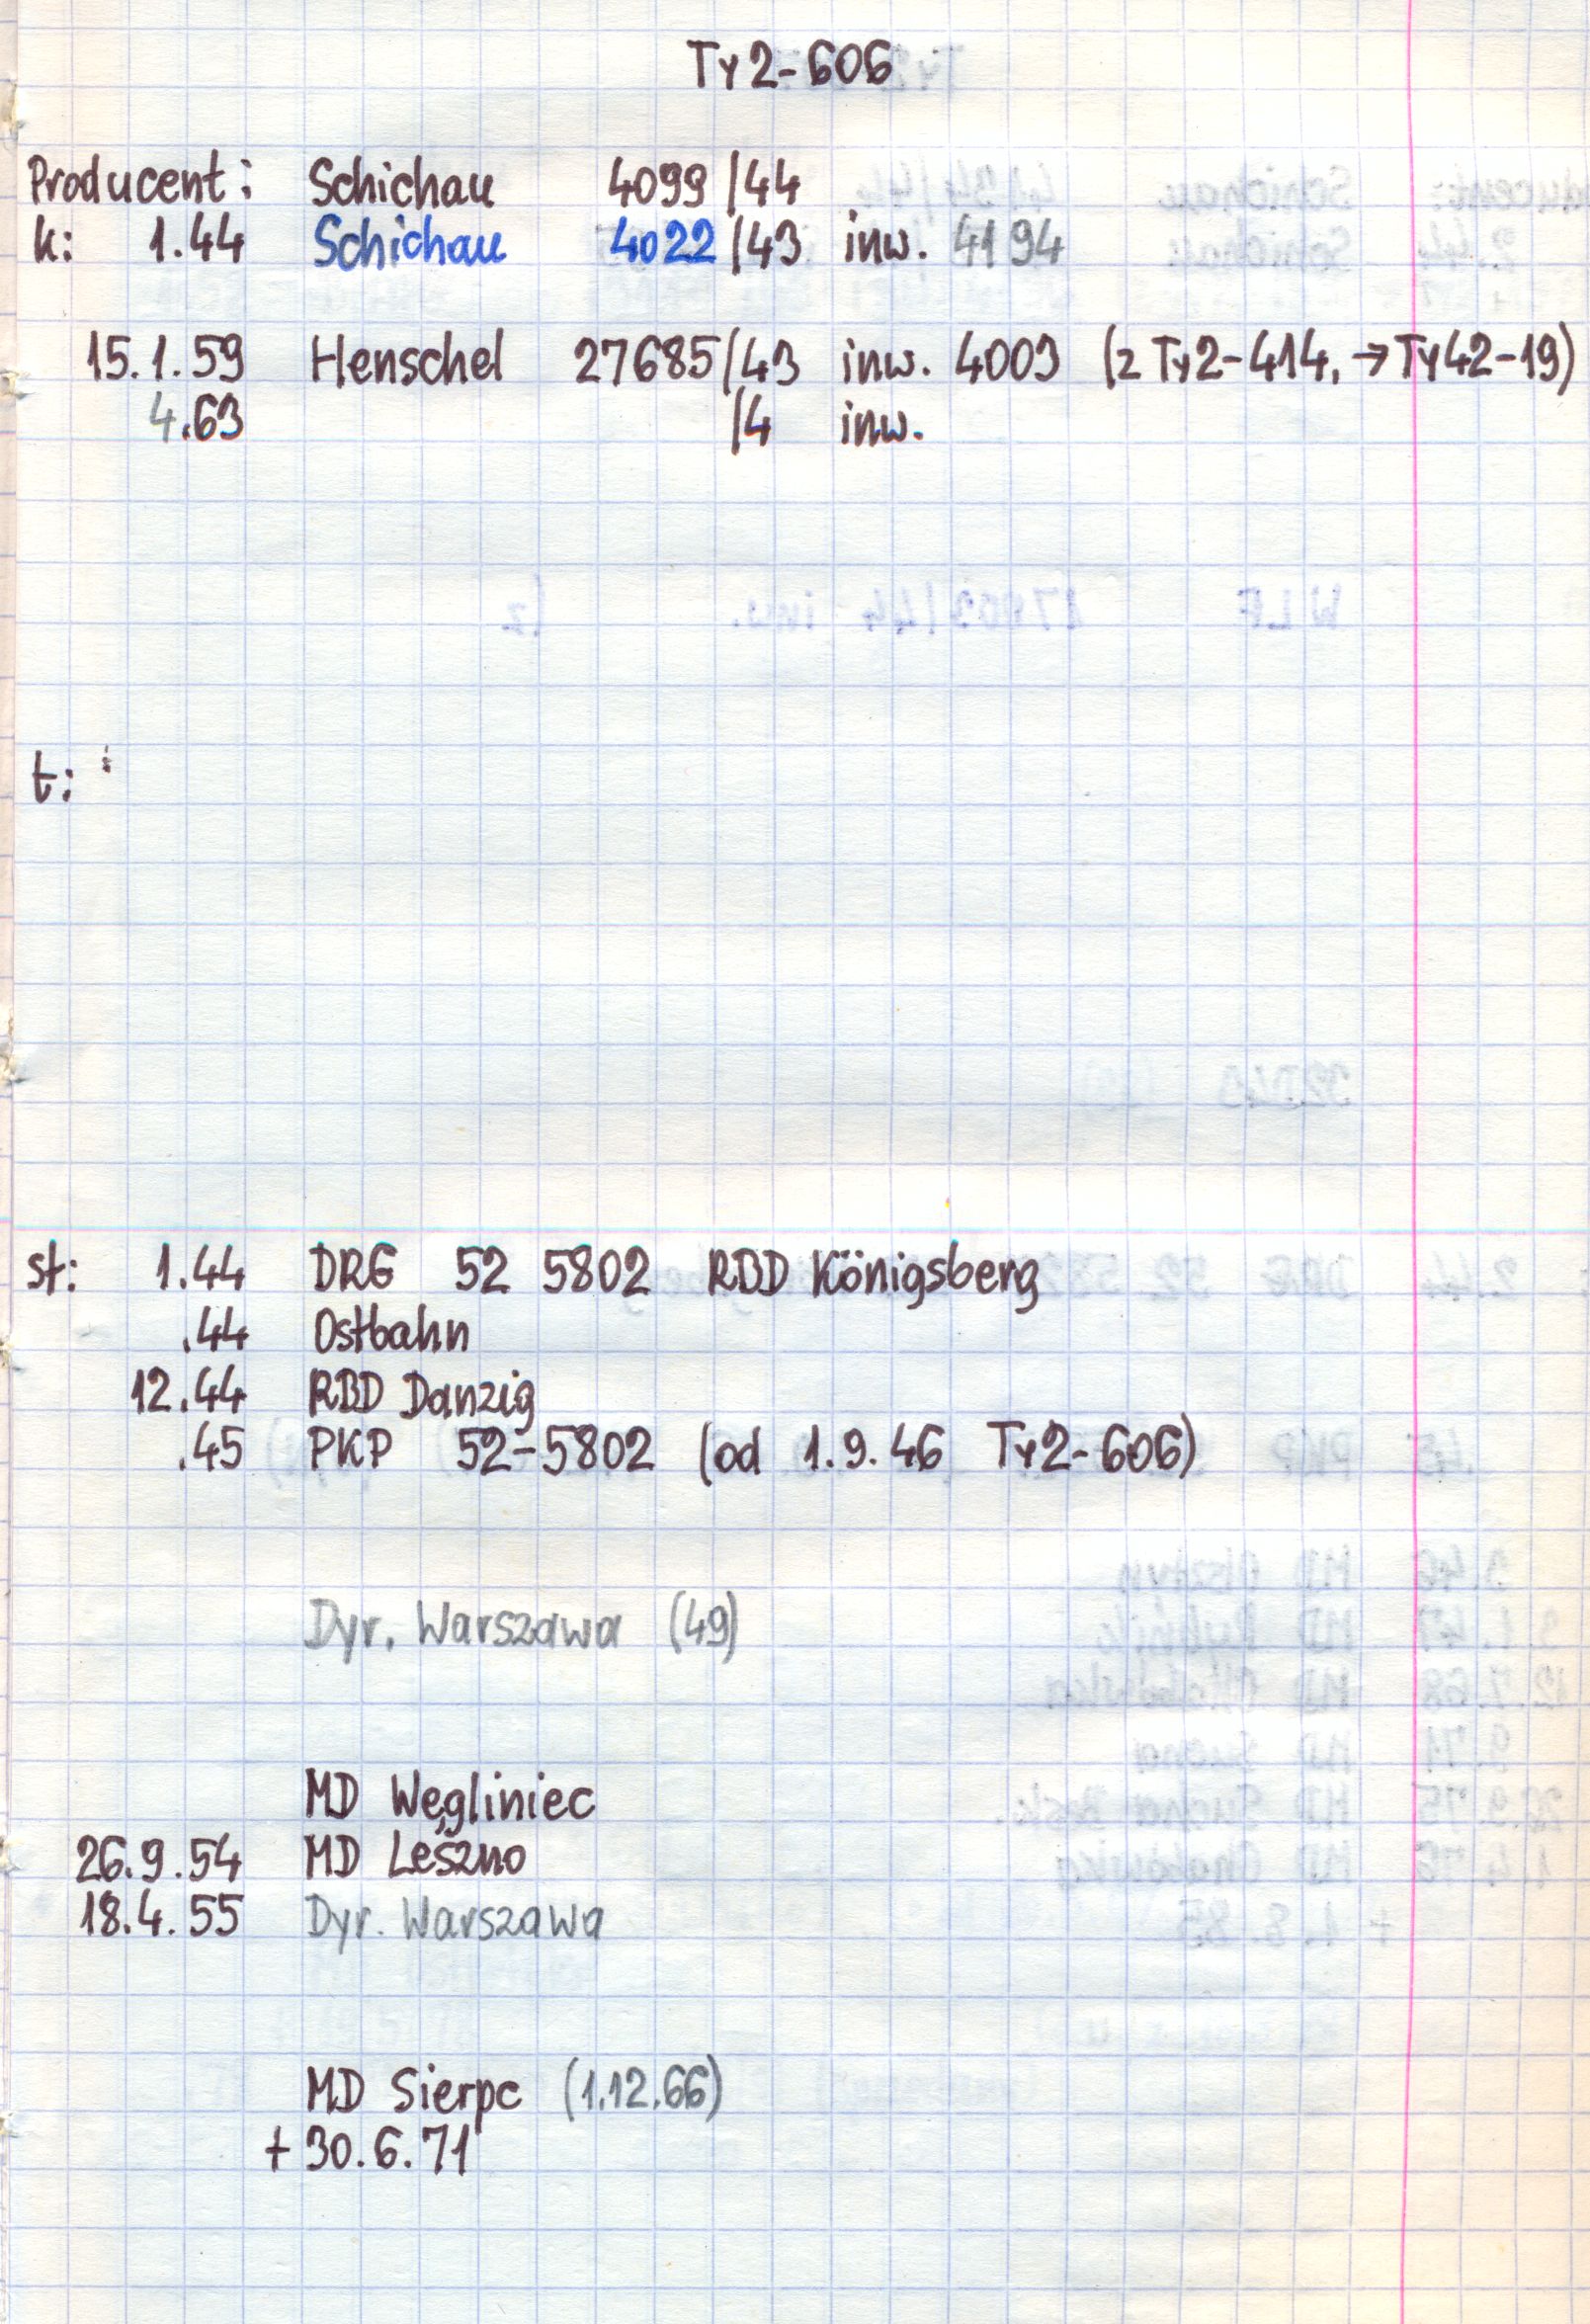 Ty2-606
Producent: Schichau 4099/44
k: 1.44 Schichau 4022/43 inw. 4194
15.1.59 Henschel 27685/43 inw. 4009 (z Ty2-414, → Ty42-19)
4.63 /4 inw.
t:
st: 1.44 DRG 52 5802 RBD Königsberg
.44 Ostbahn
12.44 RBD Danzig
.45 PKP 52-5802 (od 1.9.46 Ty2-606)
Dyr. Warszawa (49)
MD Węgliniec
26.9.54 MD Leszno
18.4.55 Dyr. Warszawa
MD Sierpc (1.12.66)
+ 30.6.71